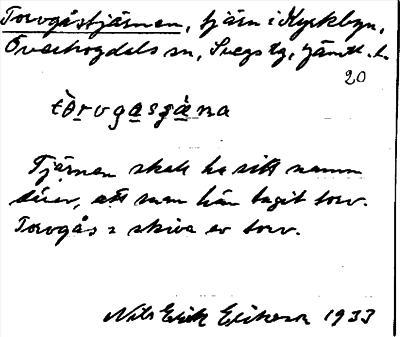 Torvgåstjärnen, tjärn i Kyrkbyn,
Överhogdals sn, Svegs tg, Jämtl. l.
20
tòrvgasɟæ̀na
Tjärnen skall ha sitt namn
därav, att man här tagit torv.
Torvgås = skiva av torv.
Nils Erik Eriksson 1933